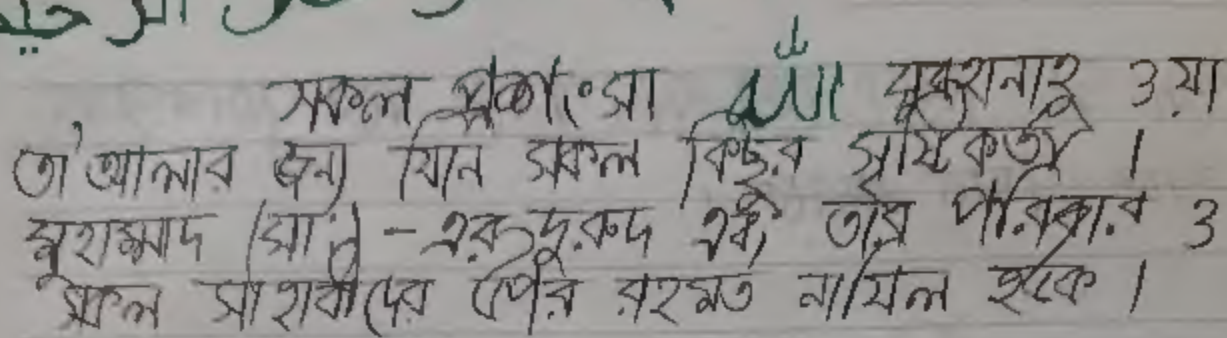 الرحيم
সকল প্রশংসা الله সুবহানাহু ওয়া
তা'আলার জন্য যিনি সকল কিছুর সৃষ্টিকর্তা।
মুহাম্মাদ (সাঃ) -এর দুরুদ এবং তার পরিবার ও
সকল সাহাবীদের উপর রহমত নাযিল হউক।